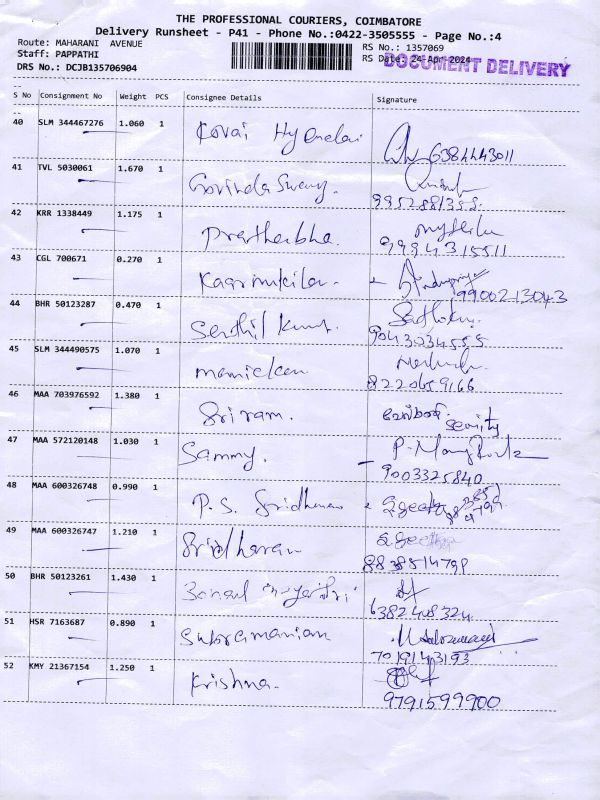 THE PROFESSIONAL COURIERS, COIMBATORE
Delivery Runsheet - P41 - Phone No.:0422-3505555 - Page No.:4
Route: MAHARANI AVENUE
RS No.: 1357069
Staff: PAPPATHI
RS Date: 24-Apr-2024
DOCUMENT DELIVERY
DRS No.: DCJB135706904
S No Consignment No Weight PCS Consignee Details Signature
40 SLM 344467276 1.060 1 Kovai
6384443011
41 TVL 5030061 1.670 1 Govinda Swamy.
9952881355
42 KRR 1338449 1.175 1 Prathaibha.
9994315511
43 CGL 700671 0.270 1 Kaarmukilan
9900213043
44 BHR 50123287 0.470 1 Senthil Kumar
9043034555
45 SLM 344490575 1.070 1 manickam
8220659166
46 MAA 703976592 1.380 1 Sriram.
47 MAA 572120148 1.030 1 Sammy.
9003325840
48 MAA 600326748 0.990 1 P. S. Sridharan
49 MAA 600326747 1.210 1 Sridharan
50 BHR 50123261 1.430 1
6382408324
51 HSR 7163687 0.890 1 Subramaniam
7019143193
52 KMY 21367154 1.250 1 Krishna.
9791599900